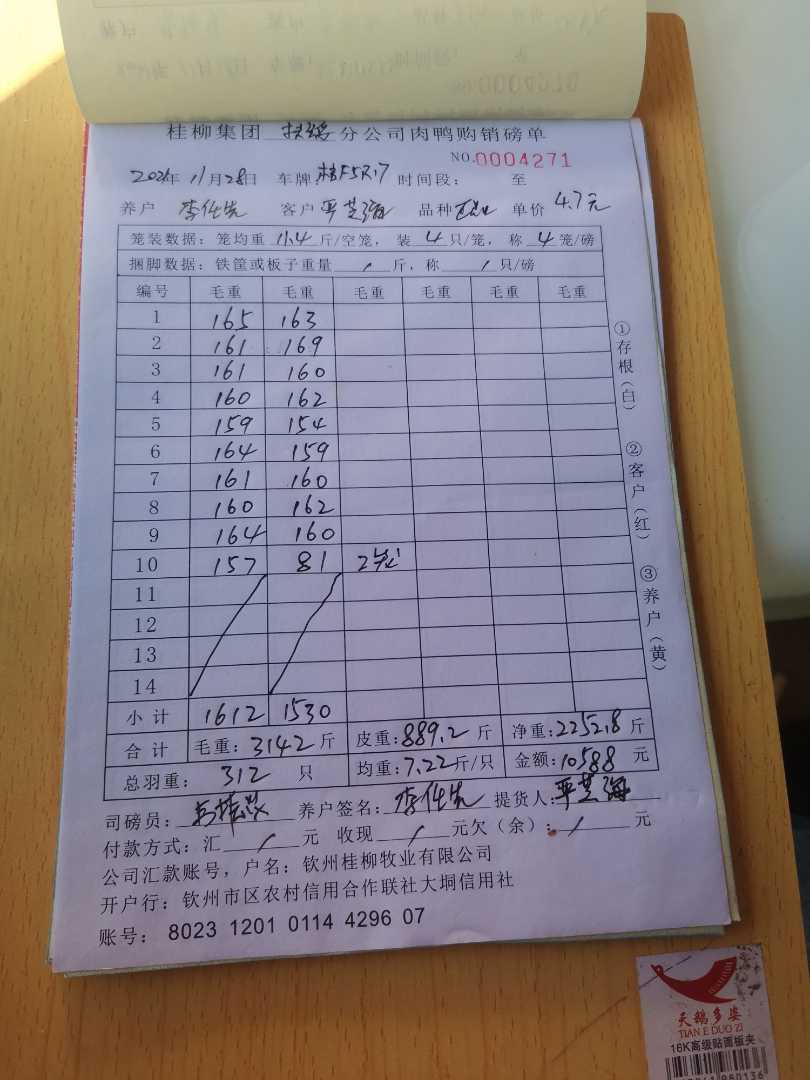 桂柳集团 扶绥 分公司肉鸭购销磅单
NO.0004271
2021年 11月28日 车牌: 时间段: 至
养户 李仕先 客户 平芝海 品种 单价 4.7元
笼装数据: 笼均重 11.4 斤/空笼, 装 4 只/笼, 称 4 笼/磅
捆脚数据: 铁筐或板子重量 / 斤, 称 / 只/磅
编号 毛重 毛重 毛重 毛重 毛重 毛重
1 165 163
2 161 169
3 161 160
4 160 162
5 159 154
6 164 159
7 161 160
8 160 162
9 164 160
10 157 81 2笼
11
12
13
14
小计 1612 1530
合计 毛重: 3142 斤 皮重: 889.2 斤 净重: 2252.8 斤
总羽重: 312 只 均重: 7.22 斤/只 金额: 10588 元
司磅员: 养户签名: 李仕先 提货人: 平芝海
付款方式: 汇 / 元 收现 / 元欠(余): / 元
公司汇款账号, 户名: 钦州桂柳牧业有限公司
开户行: 钦州市区农村信用合作联社大垌信用社
账号: 8023 1201 0114 4296 07
①存根(白)
②客户(红)
③养户(黄)
天鹅多姿
TIAN E DUO ZI
16K高级贴画板夹